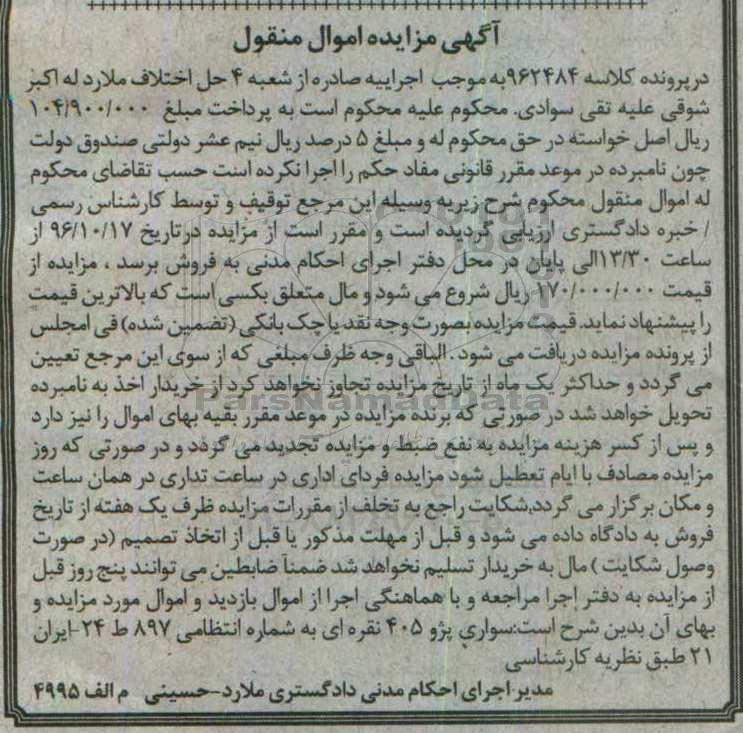 آگهی مزایده اموال منقول
درپرونده کلاسه ۹۶۲۴۸۴به موجب اجراییه صادره از شعبه ۴ حل اختلاف ملارد له اکبر
شوقی علیه تقی سوادی. محکوم علیه محکوم است به پرداخت مبلغ ۱۰۴/۹۰۰/۰۰۰
ریال اصل خواسته در حق محکوم له و مبلغ ۵ درصد ریال نیم عشر دولتی صندوق دولت
چون نامبرده در موعد مقرر قانونی مفاد حکم را اجرا نکرده است حسب تقاضای محکوم
له اموال منقول محکوم شرح زیر به وسیله این مرجع توقیف و توسط کارشناس رسمی
/ خبره دادگستری ارزیابی گردیده است و مقرر است از مزایده درتاریخ ۹۶/۱۰/۱۷ از
ساعت ۱۳/۳۰الی پایان در محل دفتر اجرای احکام مدنی به فروش برسد ، مزایده از
قیمت ۱۷۰/۰۰۰/۰۰۰ ریال شروع می شود و مال متعلق بکسی است که بالاترین قیمت
را پیشنهاد نماید. قیمت مزایده بصورت وجه نقد یا چک بانکی (تضمین شده) فی امجلس
از پرونده مزایده دریافت می شود . الباقی وجه ظرف مبلغی که از سوی این مرجع تعیین
می گردد و حداکثر یک ماه از تاریخ مزایده تجاوز نخواهد کرد از خریدار اخذ به نامبرده
ParsNamadData
تحویل خواهد شد در صورتی که برنده مزایده در موعد مقرر بقیه بهای اموال را نیز دارد
و پس از کسر هزینه مزایده به نفع ضبط و مزایده تجدید می گردد و در صورتی که روز
مزایده مصادف با ایام تعطیل شود مزایده فردای اداری در ساعت تداری در همان ساعت
و مکان برگزار می گردد.شکایت راجع به تخلف از مقررات مزایده ظرف یک هفته از تاریخ
فروش به دادگاه داده می شود و قبل از مهلت مذکور یا قبل از اتخاذ تصمیم (در صورت
وصول شکایت ) مال به خریدار تسلیم نخواهد شد ضمناً ضابطین می توانند پنج روز قبل
از مزایده به دفتر اجرا مراجعه و با هماهنگی اجرا از اموال بازدید و اموال مورد مزایده و
بهای آن بدین شرح است:سواری پژو ۴۰۵ نقره ای به شماره انتظامی ۸۹۷ ط ۲۴-ایران
۲۱ طبق نظریه کارشناسی
مدیر اجرای احکام مدنی دادگستری ملارد-حسینی م الف ۴۹۹۵